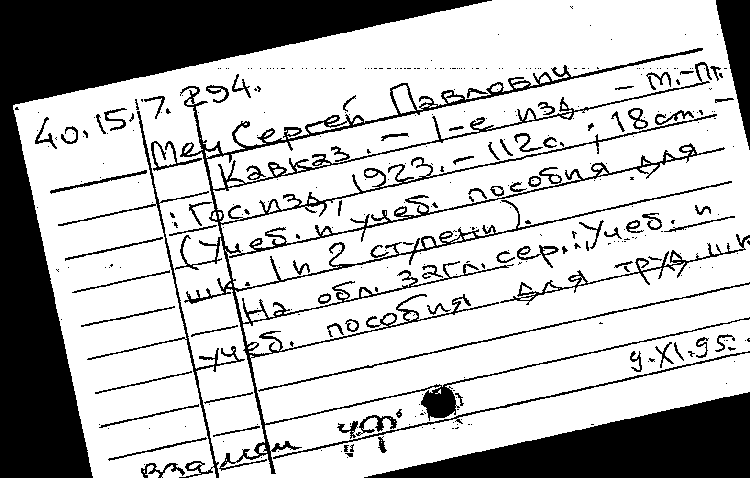 40.15.7.294.
Меч Сергей Павлович
Кавказ. - 1-е изд. - М.-Пг.
: Гос. изд, 1923. - 112с. ; 18 ст. -
(Учеб. и учеб. пособия для
шк. 1 и 2 ступени).
На обл. загл. сер.: Учеб. и
учеб. пособия для труд. шк
9.XI.95.
взамен